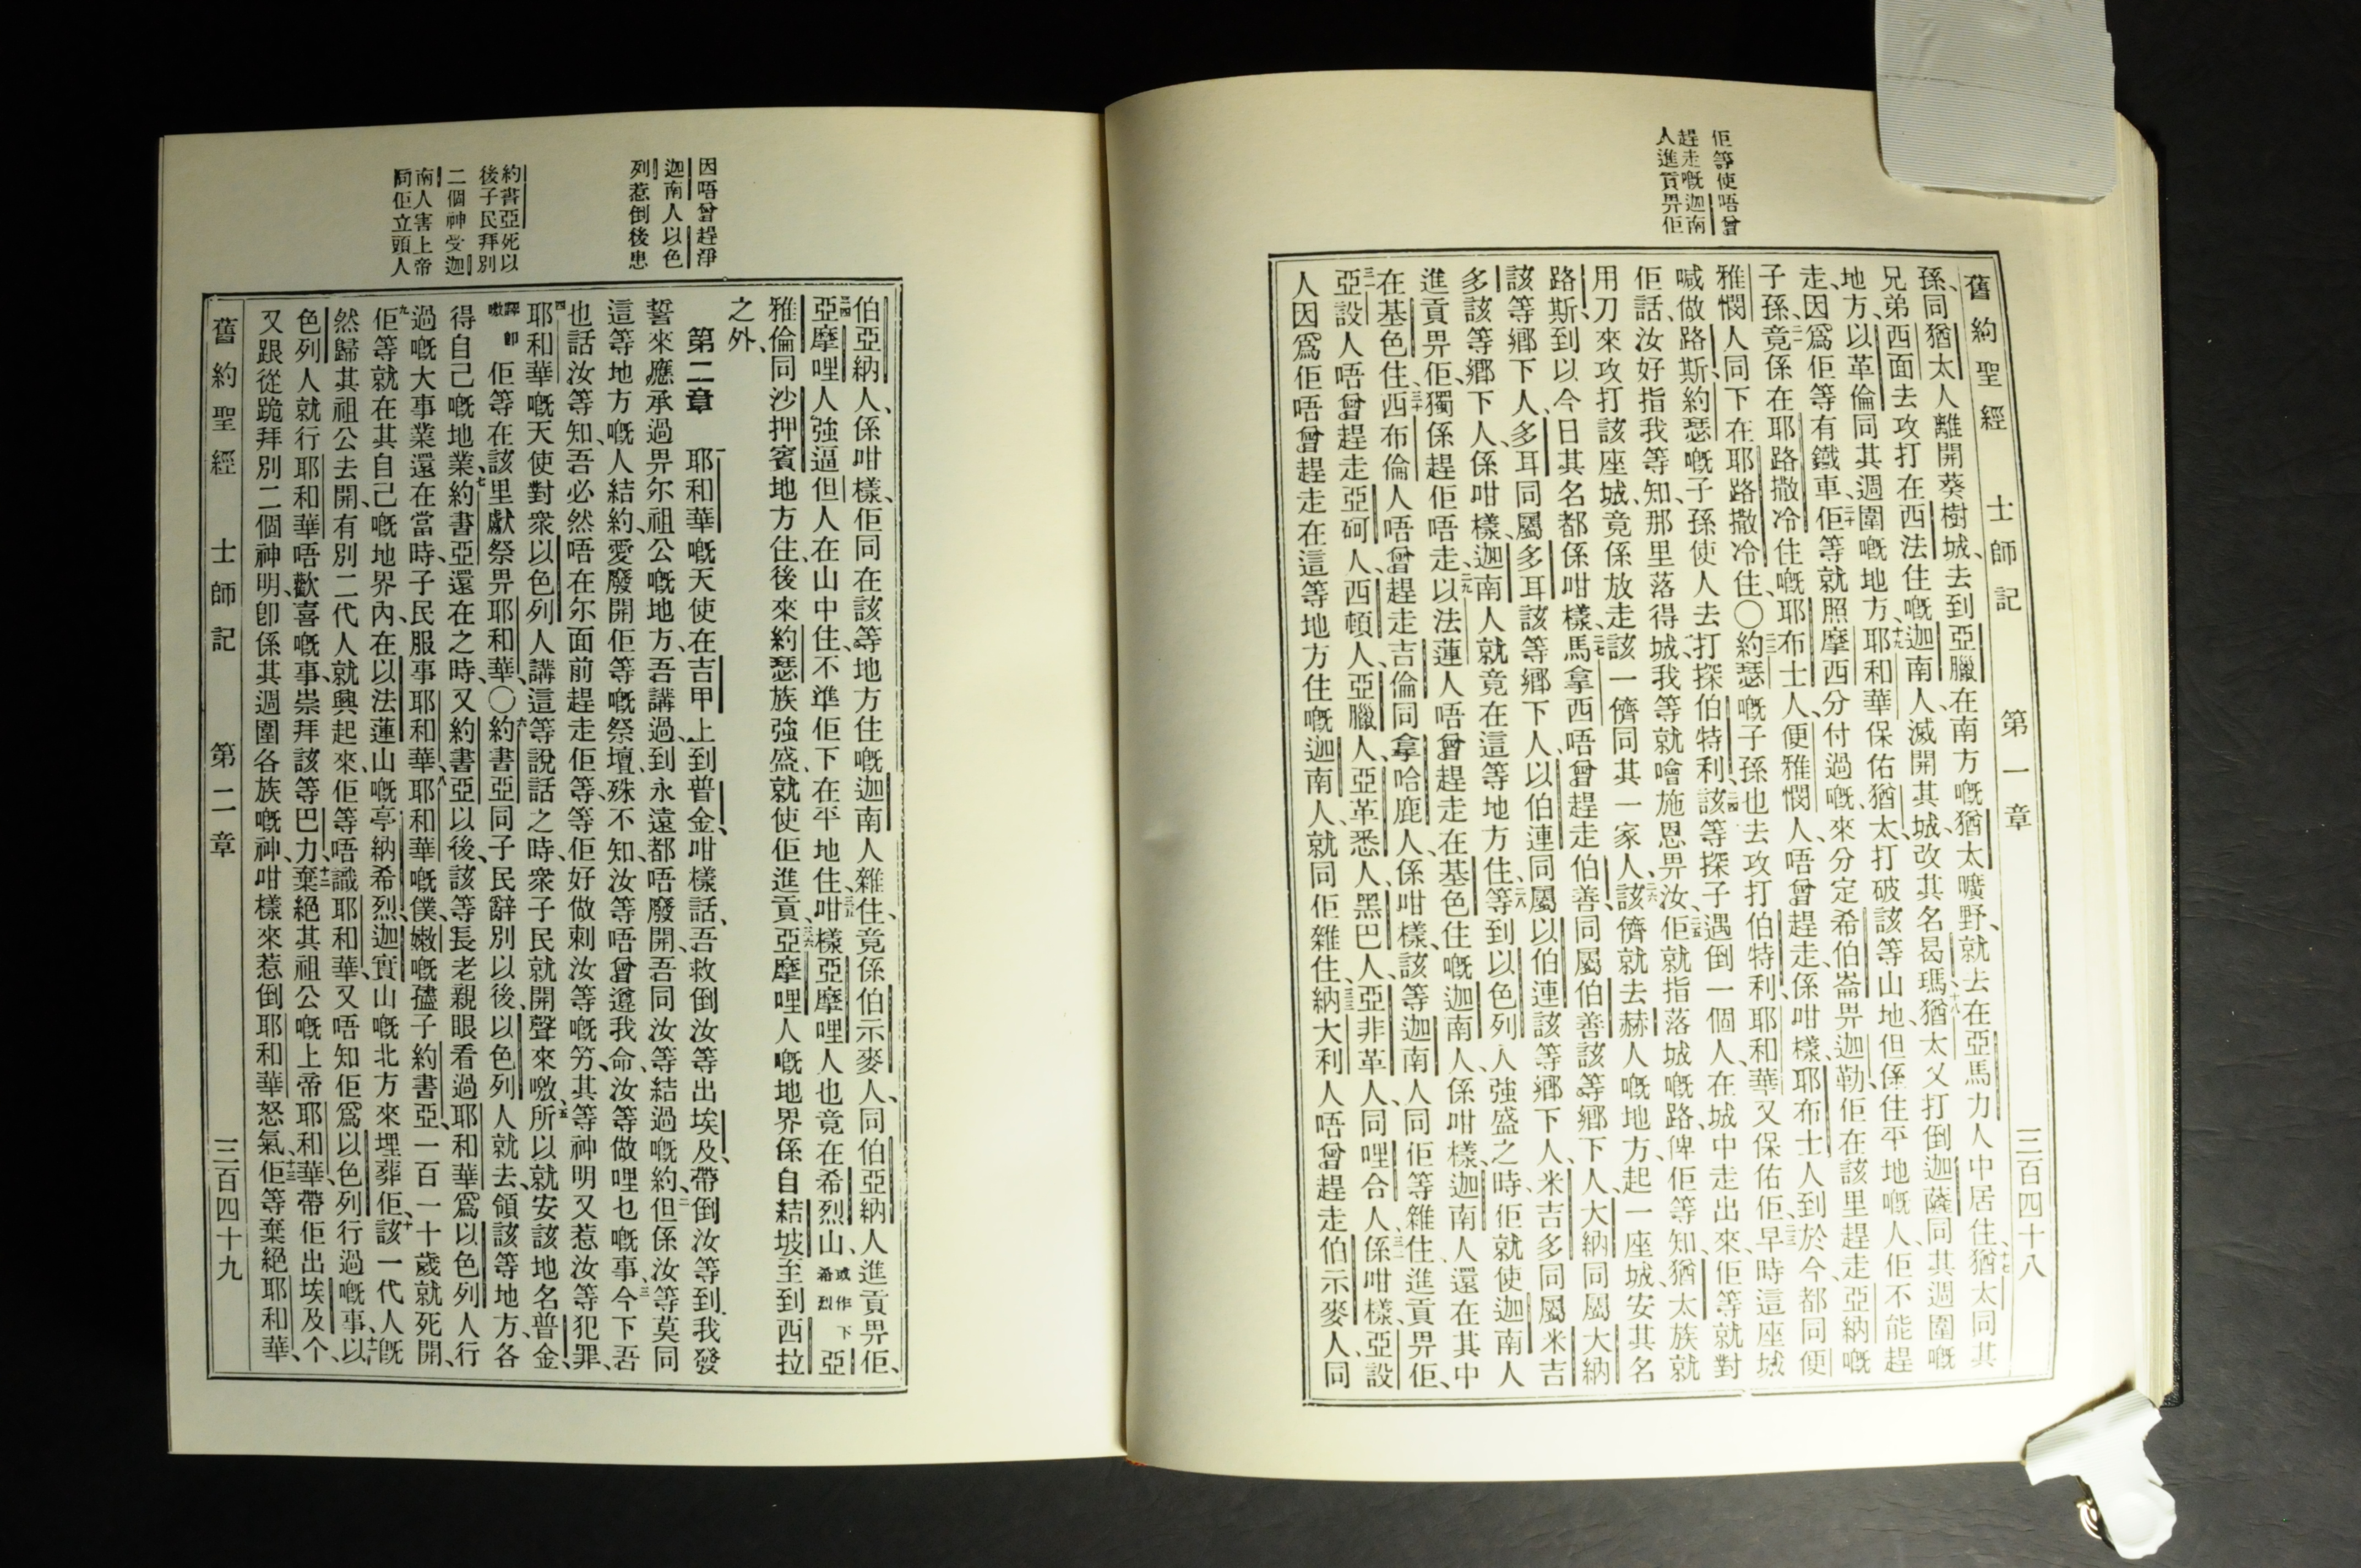 佢等使唔曾
趕走嘅迦南
人進貢畀佢
舊約聖經 士師記 第一章 三百四十八
孫、同猶太人離開葵樹城、去到亞臘在南方嘅猶太曠野、就去在亞馬力人中居住、十七猶太同其
兄弟西面去攻打在西法住嘅迦南人、滅開其城、改其名曷瑪、十八猶太又打倒迦薩同其週圍嘅
地方、以革倫同其週圍嘅地方、十九耶和華保佑猶太、打破該等山地、但係住平地嘅人、佢不能趕
走、因爲佢等有鐵車、二十佢等就照摩西分付過嘅、來分定希伯崙畀迦勒、佢在該里趕走亞納嘅
子孫、二一竟係在耶路撒冷住嘅耶布士人、便雅憫人唔曾趕走、係咁樣、耶布士人到於今、都同便
雅憫人同下在耶路撒冷住、〇二二約瑟嘅子孫也去攻打伯特利、耶和華又保佑佢、二三早時這座城
喊做路斯、約瑟嘅子孫使人去打探伯特利、二四該等探子遇倒一個人、在城中走出來、佢等就對
佢話、汝好指我等知、那里落得城、我等就噲施恩畀汝、二五佢就指落城嘅路、俾佢等知、猶太族就
用刀來攻打該座城、竟係放走該一儕同其一家人、二六該儕就去赫人嘅地方、起一座城、安其名
路斯、到以今日其名都係咁樣、二七馬拿西唔曾趕走伯善同屬伯善該等鄉下人、大納同屬大納
該等鄉下人、多耳同屬多耳該等鄉下人、以伯連同屬以伯連該等鄉下人、米吉多同屬米吉
多該等鄉下人、係咁樣、迦南人就竟在這等地方住、二八等到以色列人強盛之時、佢就使迦南人
進貢畀佢、獨係趕佢唔走、二九以法蓮人唔曾趕走在基色住嘅迦南人、係咁樣、迦南人還在其中
在基色住、三十西布倫人唔曾趕走吉倫同拿哈鹿人、係咁樣、該等迦南人同佢等雜住、進貢畀佢、
三一亞設人唔曾趕走亞砢人、西頓人、亞臘人、亞革悉人、黑巴人、亞非革人、同哩合人、三二係咁樣、亞設
人因爲佢唔曾趕走在這等地方住嘅迦南人、就同佢雜住、三三納大利人唔曾趕走伯示麥人、同
因唔曾趕淨
迦南人以色
列惹倒後患
約書亞死以
後子民拜別
二個神受迦
南人害上帝
同佢立頭人
伯亞納人、係咁樣、佢同在該等地方住嘅迦南人雜住、竟係伯示麥人、同伯亞納人進貢畀佢、
三四亞摩哩人強逼但人在山中住、不準佢下在平地住、三五咁樣亞摩哩人也竟在希烈山、或作下希烈亞
雅倫同沙押賓地方住、後來約瑟族強盛、就使佢進貢、三六亞摩哩人嘅地界係自結坡至到西拉
之外、
第二章 一耶和華嘅天使在吉甲上到普金、咁樣話、吾救倒汝等出埃及、帶倒汝等到我發
誓來應承過畀尔祖公嘅地方、吾講過、到永遠都唔廢開、吾同汝等結過嘅約、二但係汝等莫同
這等地方嘅人結約、愛廢開佢等嘅祭壇、殊不知、汝等唔曾遵我命、汝等做哩乜嘅事、三今下吾
也話汝等知、吾必然唔在尔面前趕走佢等、等佢好做刺汝等嘅竻、其等神明又惹汝等犯罪、
四耶和華嘅天使對衆以色列人講這等說話之時、衆子民就開聲來噭、五所以就安該地名普金、
譯卽噭 佢等在該里獻祭畀耶和華、〇六約書亞同子民辭別以後、以色列人就去、領該等地方、各
得自己嘅地業、七約書亞還在之時、又約書亞以後、該等長老親眼看過耶和華爲以色列人行
過嘅大事業、還在當時、子民服事耶和華、八耶和華嘅僕、嫩嘅孻子約書亞、一百一十歲就死開、
九佢等就在其自己嘅地界內、在以法蓮山嘅亭納希烈、迦實山嘅北方來埋葬佢、十該一代人旣
然歸其祖公去開、有別二代人就興起來、佢等唔識耶和華、又唔知佢爲以色列行過嘅事、十一以
色列人就行耶和華唔歡喜嘅事、崇拜該等巴力、十二棄絕其祖公嘅上帝耶和華、帶佢出埃及个、
又跟從跪拜別二個神明、卽係其週圍各族嘅神、咁樣來惹倒耶和華怒氣、十三佢等棄絕耶和華、
舊約聖經 士師記 第二章 三百四十九